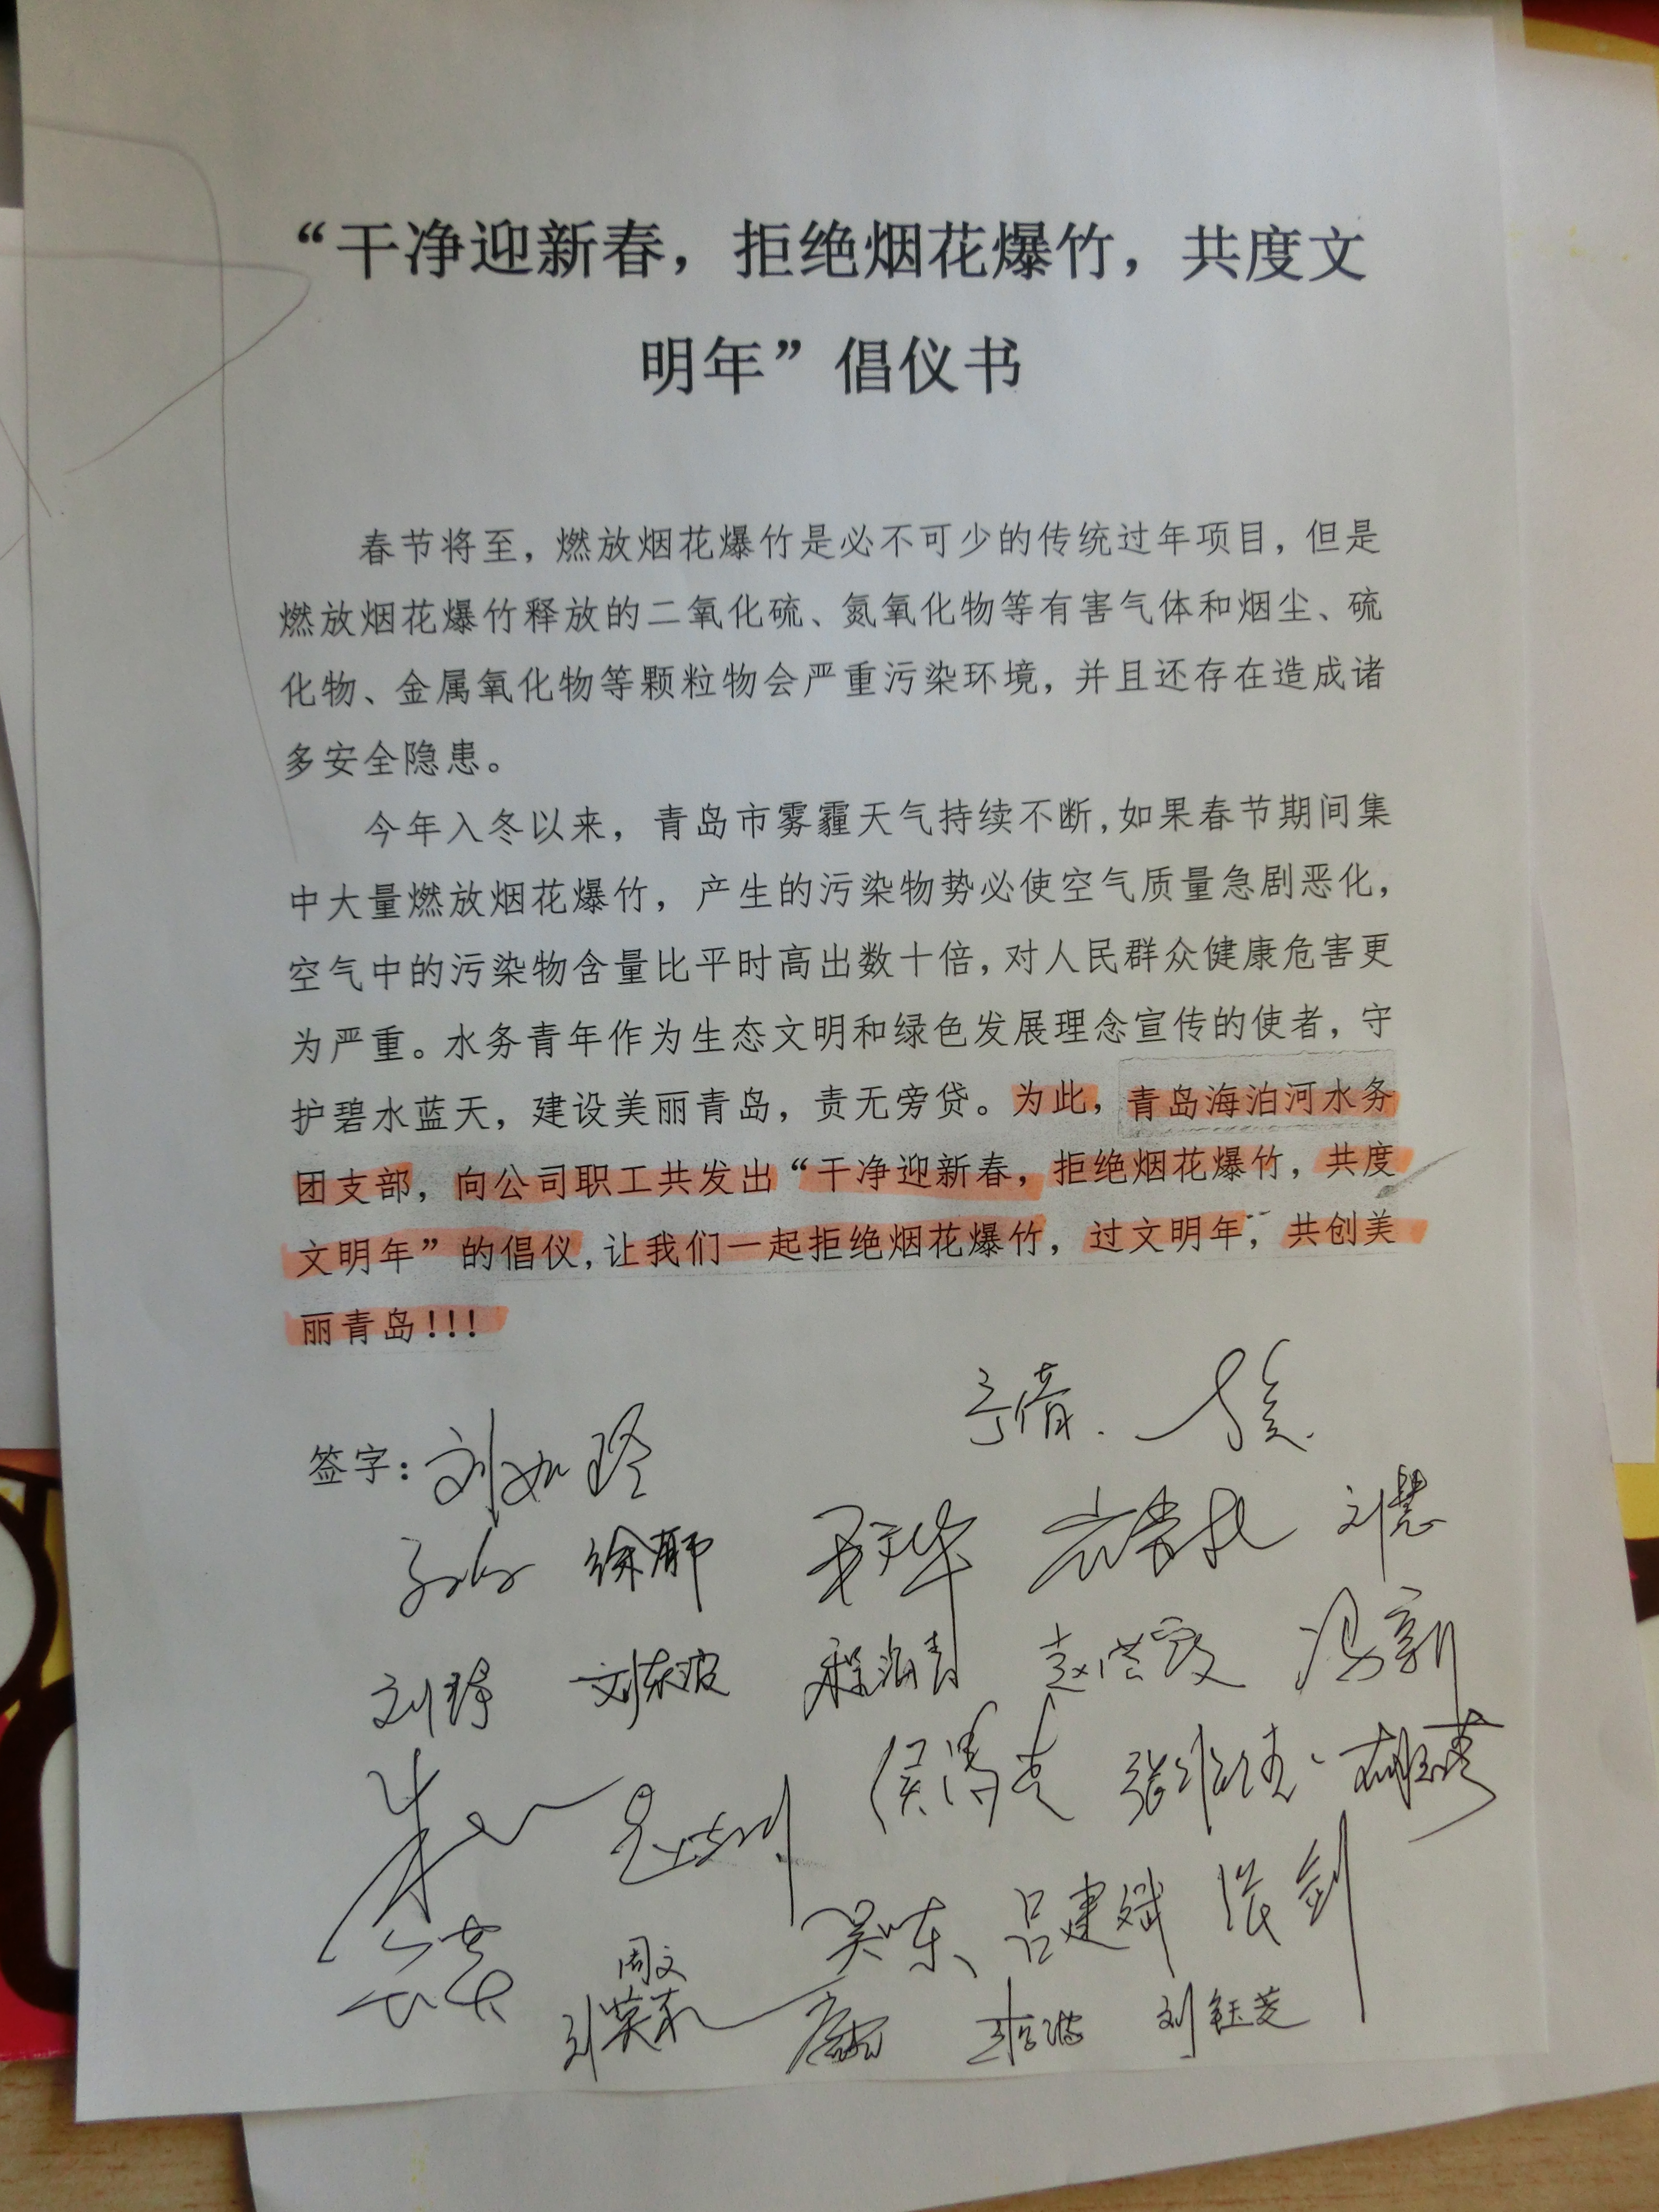 “干净迎新春，拒绝烟花爆竹，共度文
明年”倡仪书
春节将至，燃放烟花爆竹是必不可少的传统过年项目，但是
燃放烟花爆竹释放的二氧化硫、氮氧化物等有害气体和烟尘、硫
化物、金属氧化物等颗粒物会严重污染环境，并且还存在造成诸
多安全隐患。
今年入冬以来，青岛市雾霾天气持续不断,如果春节期间集
中大量燃放烟花爆竹，产生的污染物势必使空气质量急剧恶化，
空气中的污染物含量比平时高出数十倍，对人民群众健康危害更
为严重。水务青年作为生态文明和绿色发展理念宣传的使者，守
护碧水蓝天，建设美丽青岛，责无旁贷。为此，青岛海泊河水务
团支部，向公司职工共发出“干净迎新春，拒绝烟花爆竹，共度
文明年”的倡仪,让我们一起拒绝烟花爆竹，过文明年，共创美
丽青岛!!!
签字：刘如玲
刘慧
刘东波 程海青 冯新
吴东 吕建斌 张剑
周文
刘钰菱